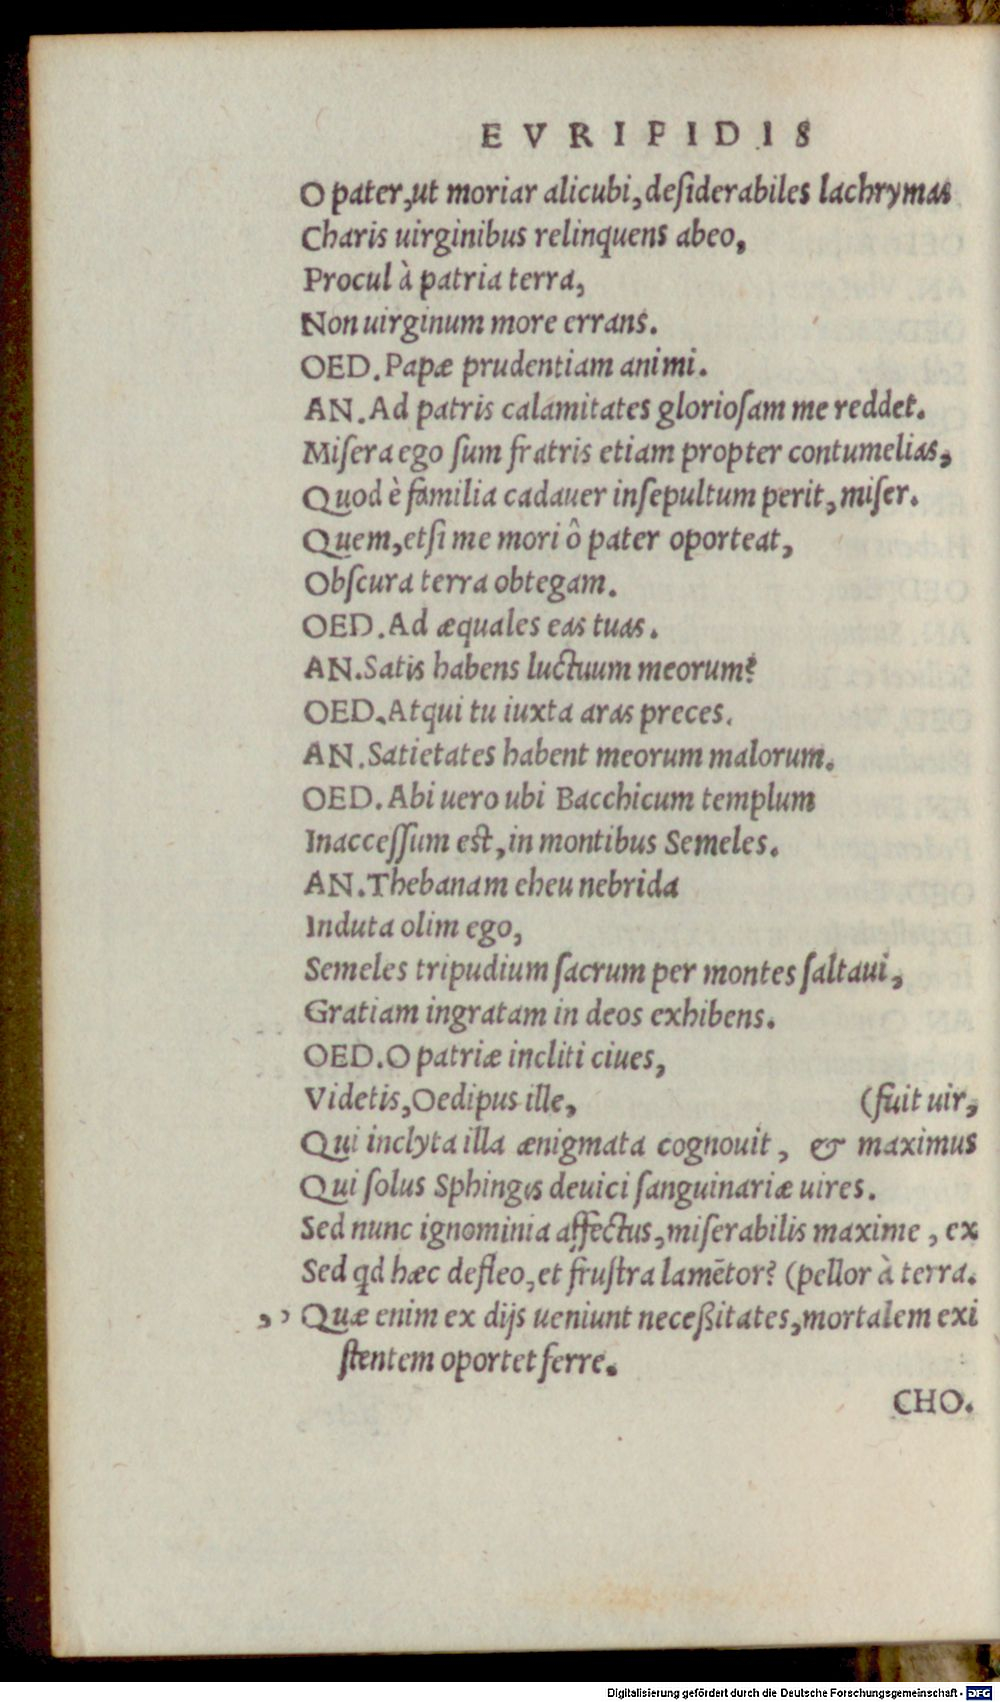 EVRIPIDIS
O pater,ut moriar alicubi,deſiderabiles lachrymas
Charis uirginibus relinquens abeo,
Procul à patria terra,
Non uirginum more errans.
OED.Papæ prudentiam animi.
AN.Ad patris calamitates glorioſam me reddet.
Miſera ego ſum fratris etiam propter contumelias,
Quod è familia cadauer inſepultum perit,miſer.
Quem,etſi me mori ô pater oporteat,
Obſcura terra obtegam.
OED.Ad æquales eas tuas.
AN.Satis habens luctuum meorum?
OED.Atqui tu iuxta aras preces.
AN.Satietates habent meorum malorum.
OED.Abi uero ubi Bacchicum templum
Inacceſſum est,in montibus Semeles.
AN.Thebanam eheu nebrida
Induta olim ego,
Semeles tripudium ſacrum per montes ſaltaui,
Gratiam ingratam in deos exhibens.
OED.O patriæ incliti ciues,
Videtis,Oedipus ille, (fuit uir,
Qui inclyta illa ænigmata cognouit, & maximus
Qui ſolus Sphingis deuici ſanguinariæ uires.
Sed nunc ignominia affectus,miſerabilis maxime, ex
Sed qd hæc defleo,et fruſtra lamētor? (pellor à terra.
,, Quæ enim ex dijs ueniunt neceßitates,mortalem exi
ſtentem oportet ferre.
CHO.
Digitalisierung gefördert durch die Deutsche Forschungsgemeinschaft - DFG